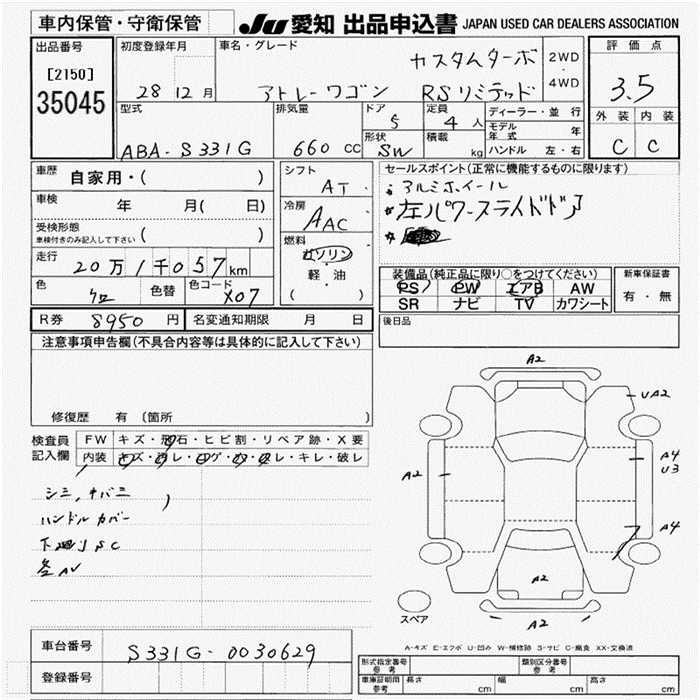 車内保管・守衛保管
JU 愛知 出品申込書 JAPAN USED CAR DEALERS ASSOCIATION
出品番号
[2150]
35045
初度登録年月
28 12 月
車名・グレード
カスタムターボ
アトレーワゴン RSリミテッド
2WD
4WD
評価点
3.5
外装 内装
C C
型式
ABA-S331G
排気量
660 CC
ドア
5
定員
4 人
形状
SW
積載
kg
ディーラー・並行
モデル年式 年
ハンドル 左・右
車歴
自家用・( )
車検
年 月( 日)
受検形態
車検付きのみ記入して下さい ( )
走行
20万1千057km
色
クロ
色替
色コード
X07
シフト
AT
冷房
AAC
燃料
ガソリン
軽・油
( )
セールスポイント(正常に機能するものに限ります)
アルミホイール
左パワースライドドア
装備品(純正品に限り○をつけてください)
PS PW エアB AW
SR ナビ TV カワシート
新車保証書
有・無
R券 8950 円
名変通知期限 月 日
後日品
注意事項申告欄(不具合内容等は具体的に記入して下さい)
修復歴 有 〔箇所 〕
検査員記入欄
FW キズ・飛石・ヒビ割・リペア跡・X要
内装 キズ・汚レ・コゲ・穴・スレ・キレ・破レ
シミ,ヤバミ
ハンドルカバー
下廻りSC
全AU
A2
UA2
A2
A4
U3
A4
A2
A2
スペア
A-キズ E-エクボ U-凹み W-補修跡 S-サビ C-腐食 XX-交換済
車台番号
S331G-0030629
登録番号
型式指定番号
参考
類別区分番号
参考
車庫証明用
参考
長さ cm 幅 cm 高さ cm